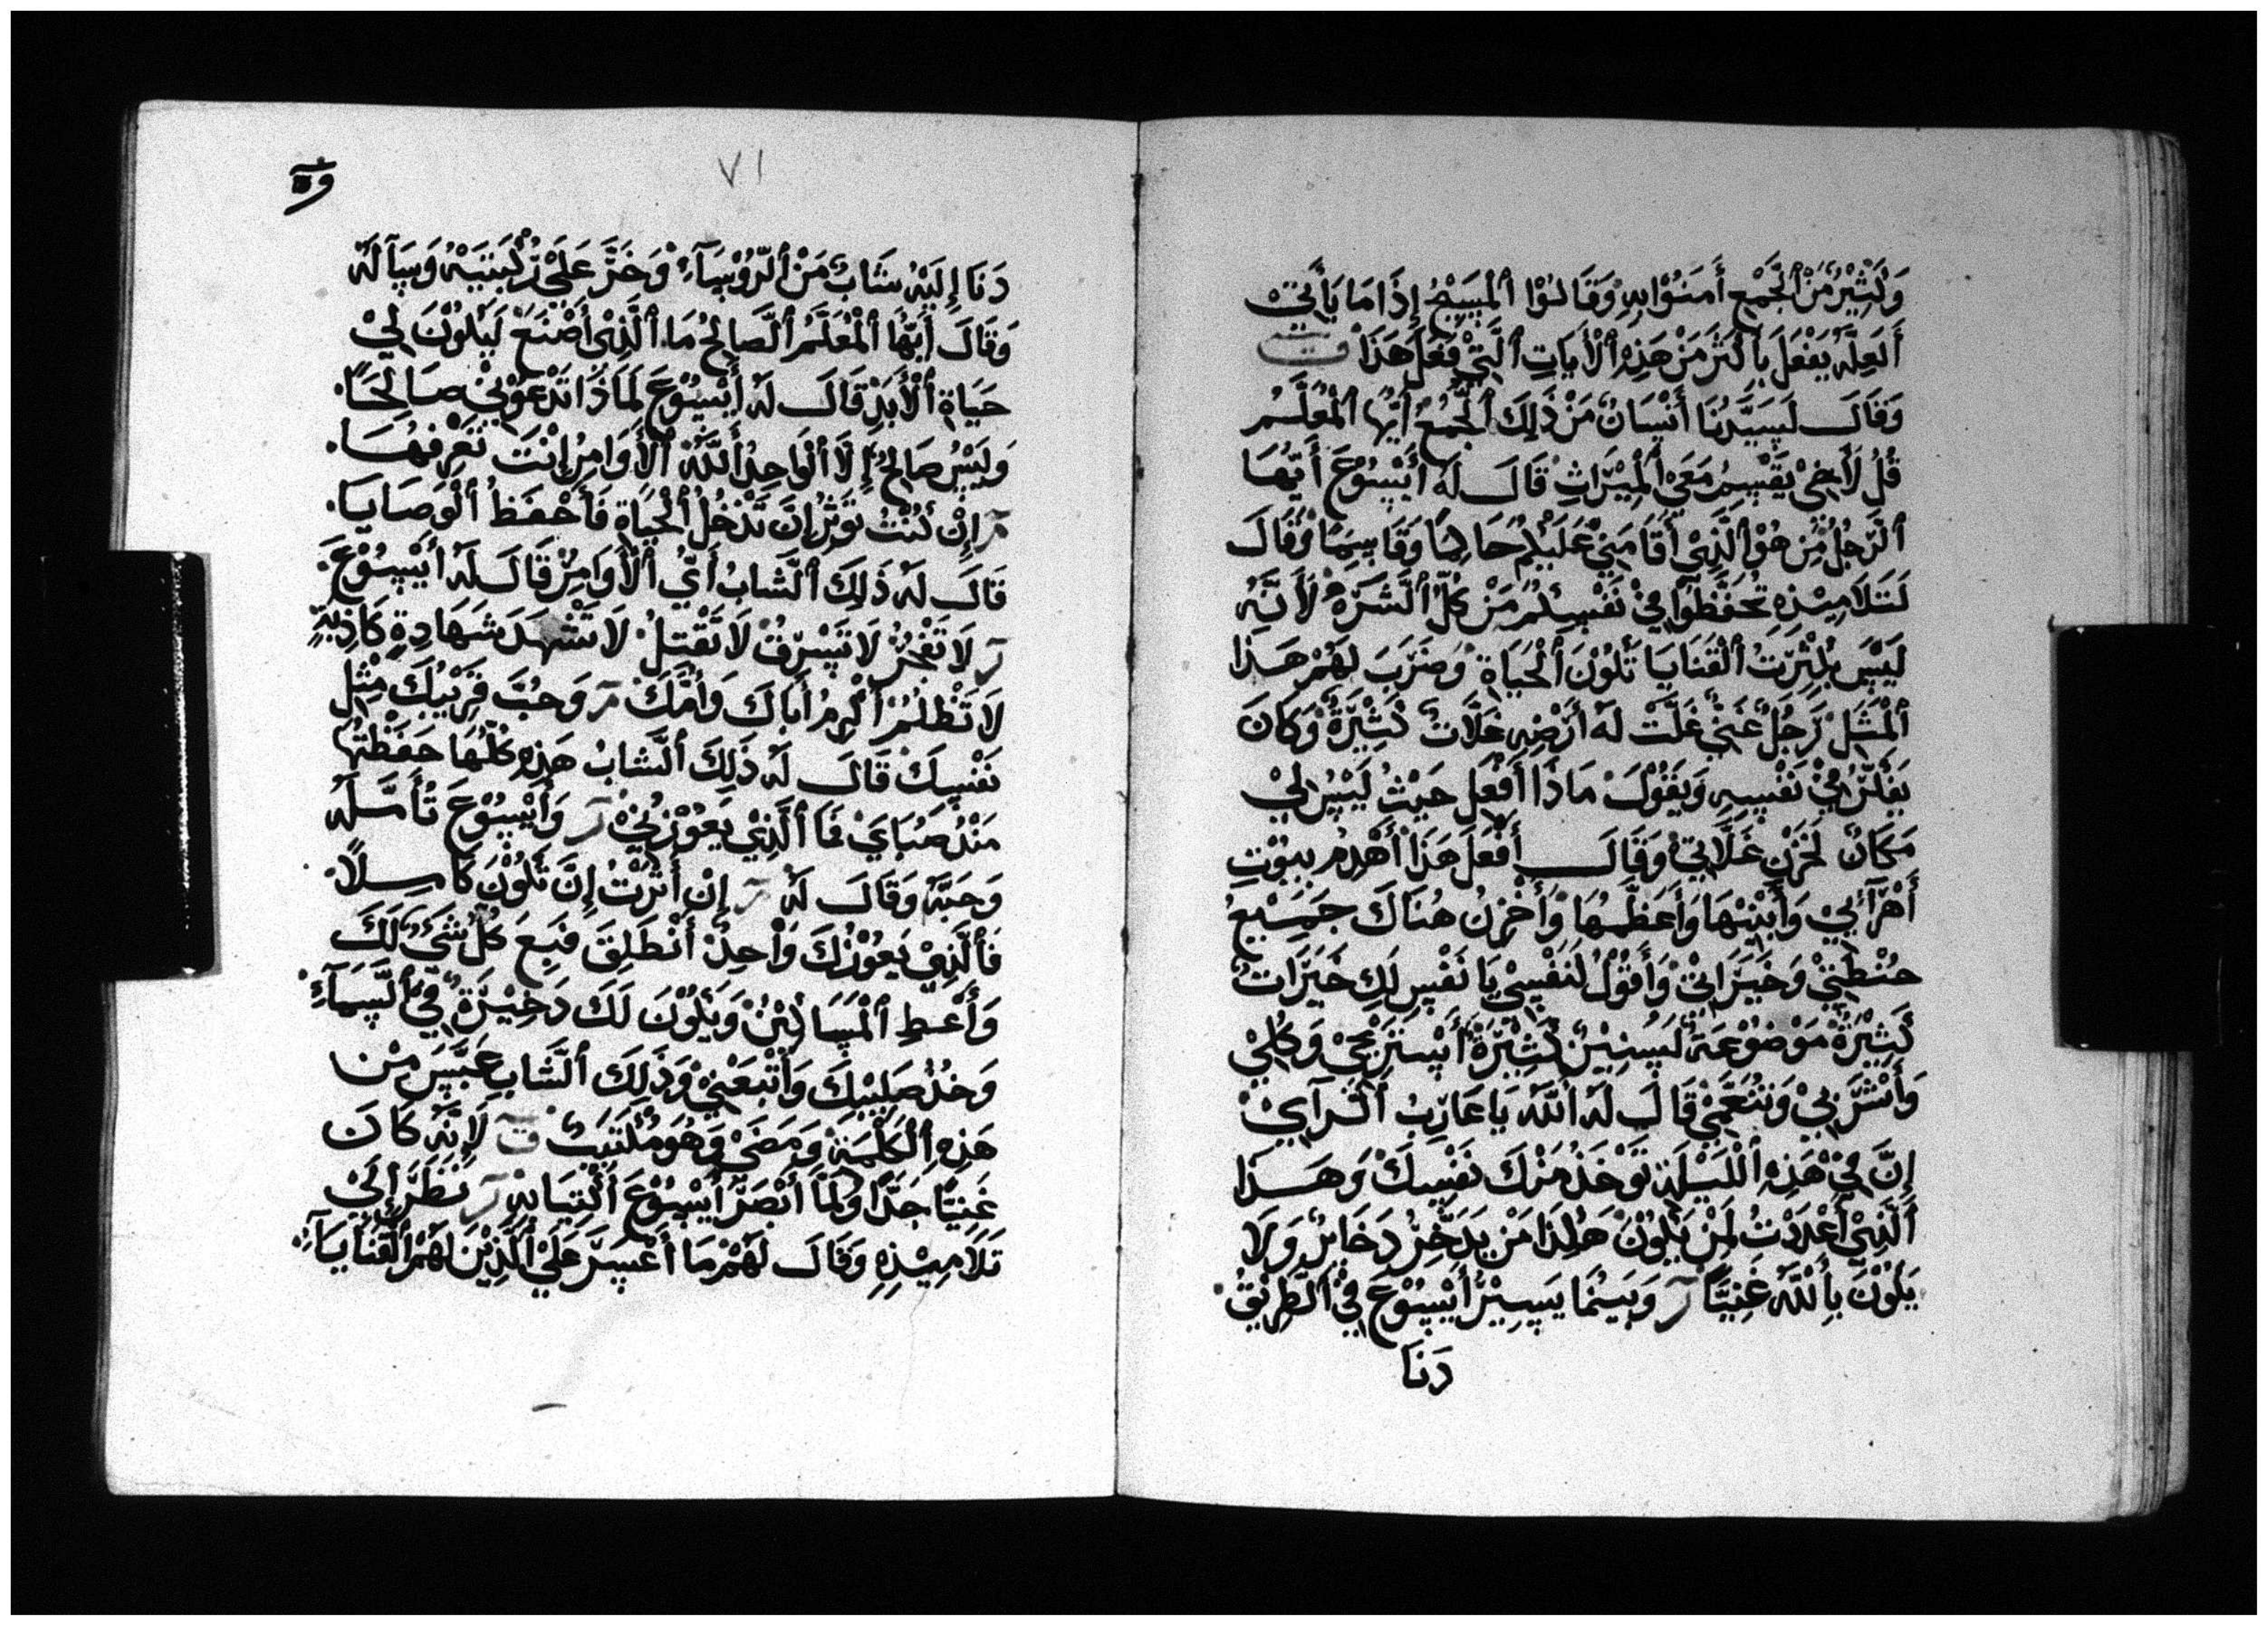 وَكَثِيْرٌ مَنْ ٱلْجَمْعِ أَمَنُوْا بِهِ وَقَالُوْا ٱلْمَسِيْحُ إِذَا مَا يَأْتِيْ
أَلَعِلَّهُ يَفْعَلُ بِأَكْثَرَ مَنْ هَذِهِ ٱلْأَيَاتِ ٱلَّتِيْ فَعَلَ هَذَا
وَقَالَ لَسَيَّدِنَا أَنْسَانٌ مَنْ ذَلِكَ ٱلْجَمْعِ أَيُّهَا ٱلْمُعَلَّمُ
قُلْ لَأَخِيْ يَقْسِمُ مَعَيْ ٱلْمِيْرَاثِ قَالَ لَهُ أَيْسُوْعَ أَيُّهَا
ٱلرَّجُلُ مَنْ هُوْ ٱلَّذِيْ أَقَامَنِيْ عَلَيْكُمْ حَاكِمًا وَقَاسِمًا وَقَالَ
لَتَلَامِيْذِهِ تَحَفَّظُوْا فِيْ نَفْسِكُمْ مَنْ كُلِّ ٱلشَّرَهُ لَأَنَّهُ
لَيْسَ بِكِثْرَتُ ٱلْقَنَايَا تَكُوْنَ ٱلْحَيَاةِ وَضَرَبَ لَهُمْ هَذَا
ٱلْمَثَلْ رَجُلٌ غَنِيٌّ غَلَّتْ لَهُ أَرْضِهِ غَلَّاتٌ كَثِيْرَةٌ وَكَانَ
يَفَكّرُ فِيْ نَفْسِهِ وَيَقُوْلَ مَاذَا أَفْعَلَ حَيْثُ لَيْسَ لِيْ
مَكَانٌ لَخَزْنِ غَلَّاتِيْ وَقَالَ أَفْعَلَ هَذَا أَهْدِمُ بِيُوْتِ
أَهْرَآئِيْ وَأَبْنِيْهَا وَأَعَظِّمُهَا وَأَخْزِنُ هُنَاكَ جَمِيْعِ
حِنْطَتِيْ وَخَيْرَاتِيْ وَأَقُوْلُ لَنَفْسِيْ يَا نَفْسِ لَكِ خَيْرَاتٌ
كَثِيْرَةٌ مَوْضُوْعَةٌ لَسُنِيْنٌ كَثِيْرَةٌ أَسْتَرِيْحِيْ وَكُلِيْ
وَأَشْرَبِيْ وَتَنَعَّمِيْ قَالَ لَهُ ٱللّٰهُ يَا عَازِبُ ٱلْرَآيْ
إِنَّ فِيْ هَذِهِ ٱلْلَيْلَةِ تَوْخَذُ مَنْكَ نَفْسِكَ وَهَذَا
ٱلَّذِيْ أَعْدَدْتُ لَمَنْ يَكُوْنَ هَكَذَا مَنْ يَدَّخِرُ دَخَايِرٌ وَلَا
يَكُوْنَ بِٱللّٰهِ غَنِيًّا وَبَيْنَمَا يَسِيْرُ أَيْسُوْعَ فِيْ ٱلْطَرِيْقُ
دَنَا
٧١
دَنَا إِلَيْهِ شَابٌ مَنْ ٱلرُّوْسَآءِ وَخَرَّ عَلَيْ رُكْبَتَيْهِ وَسَآلَهُ
وَقَالَ أَيُّهَا ٱلْمُعَلَّمُ ٱلصَّالِحُ مَا ٱلَّذِيْ أَصْنَعْ لَيَكُوْنَ لِيْ
حَيَاةِ ٱلْأَبَدْ قَالَ لَهُ أَيْسُوْعَ لَمَاذَا تَدْعُوْنِيْ صَالِحًا
وَلَيْسُ صَالِحٌ إِلَّا ٱلْوَاحِدُ أَللّٰهُ ٱلْأَوَامِرُ إِنْتَ تَعْرِفُهَا
إِنْ كُنْتُ تَوْثِرُ إِنَّ تَدْخُلُ ٱلْحَيَاةِ فَأَحْفَظُ ٱلْوَصَايَا
قَالَ لَهُ ذَلِكَ ٱلْشَّابُ أَيُّ ٱلْأَوَامِرُ قَالَ لَهُ أَيْسُوْعَ
لَا تَفْجُرْ لَا تَسْرِقُ لَا تَقْتَلْ لَا تَشْهَدَ شَهَادِةِ كَاذِبَةٍ
لَا تَظْلُمْ أَكْرِمُ أَبَاكَ وَأُمَّكَ وَحُبَّ قَرْيْبُكَ مِثْلِ
نَفْسِكَ قَالَ لَهُ ذَلِكَ ٱلْشَّابُ هَذِهِ كُلُّهَا حَفَظْتُهَا
مَنْذُ صَبَايَ فَمَا ٱلَّذِيْ يَعُوْزُنِيْ وَأَيْسُوْعَ تُأَمَّلَهُ
وَحَبَّهُ وَقَالَ لَهُ إِنْ أَثَرْتُ إِنَّ تَكُوْنَ كَامِلًا
فَٱلَّذِيْ يَعُوْزُكَ وَاْحِدٌ أَنْطَلِقَ فَبِعَ كُلُّ شَيْءٌ لَكَ
وَأَعْطِ ٱلْمَسَاكِيْنُ وَيَكُوْنَ لَكَ دَخِيْرَةٌ فِيْ ٱلْسَّمَآءِ
وَخُذْ صَلِيْبِكَ وَأَتْبَعْنِيْ وَذَلِكَ ٱلْشَّابِ عَبَّسَ مِنْ
هَذِهِ ٱلْكَلْمَةِ وَمَضَيْ وَهُوَ مُكْتَئِبٌ لَإِنَّهُ كَانَ
غَنِيًّا جَدًّا وَلَمَّا أَبْصَرَ أَيْسُوْعَ أَكْتِيَابِهِ نَظَرَ إِلَيْ
تَلَامِيْذِهِ وَقَالَ لَهُمْ مَا أَعْسَرَ عَلَيْ ٱلَّذِيْنَ لَهُمْ ٱلْقَنَايَآ